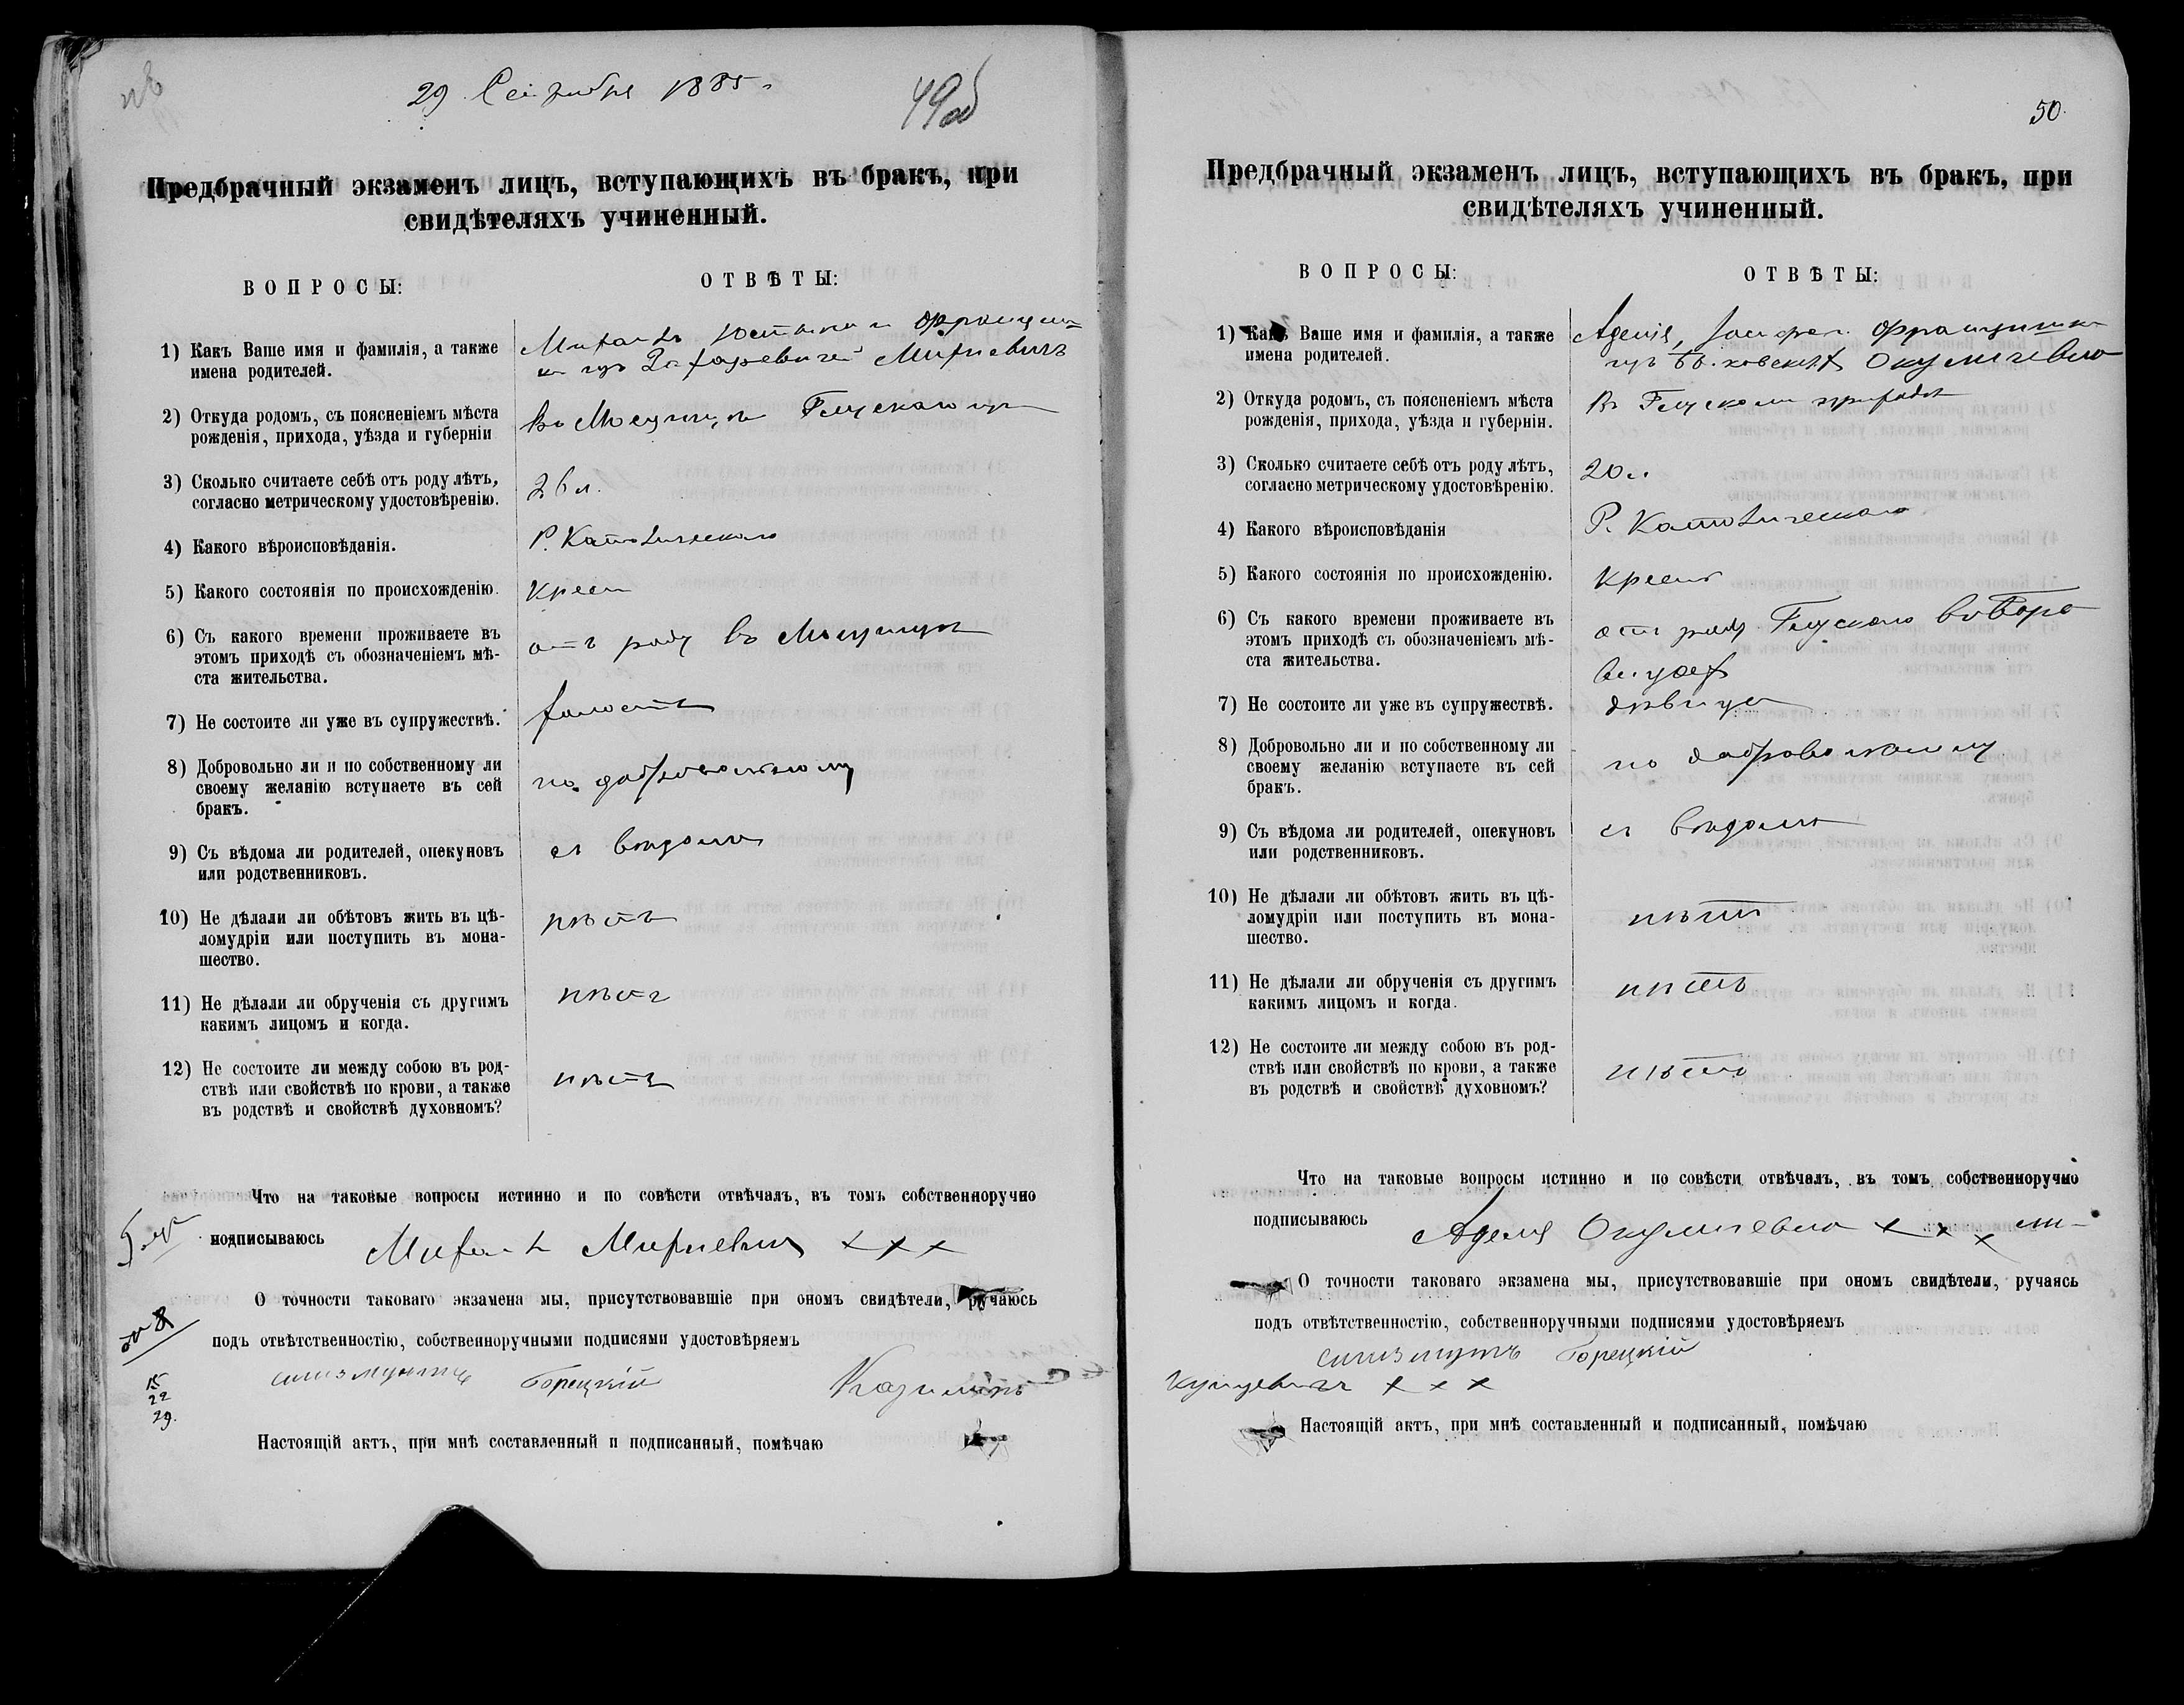 29 Сентября 1885 г.
49об
Предбрачный экзаменъ лицъ, вступающихъ въ бракъ, при
свидѣтеляхъ учиненный.
ВОПРОСЫ:
ОТВѢТЫ:
1) Какъ Ваше имя и фамилія, а также
имена родителей.
Михаилъ
Мирневичъ
2) Откуда родомъ, съ поясненіемъ мѣста
рожденія, прихода, уѣзда и губерніи
3) Сколько считаете себѣ отъ роду лѣтъ,
согласно метрическому удостовѣренію.
26 л.
4) Какого вѣроисповѣданія.
Р. Католическаго
5) Какого состоянія по происхожденію.
Крест
6) Съ какого времени проживаете въ
этомъ приходѣ съ обозначеніемъ мѣ-
ста жительства.
отъ роду въ
7) Не состоите ли уже въ супружествѣ.
холостъ
8) Добровольно ли и по собственному ли
своему желанію вступаете въ сей
бракъ.
по добровольному
9) Съ вѣдома ли родителей, опекуновъ
или родственниковъ.
съ вѣдома
10) Не дѣлали ли обѣтовъ жить въ цѣ-
ломудріи или поступить въ мона-
шество.
нѣтъ
11) Не дѣлали ли обрученія съ другимъ
какимъ лицомъ и когда.
нѣтъ
12) Не состоите ли между собою въ род-
ствѣ или свойствѣ по крови, а также
въ родствѣ и свойствѣ духовномъ?
нѣтъ
Что на таковые вопросы истинно и по совѣсти отвѣчалъ, въ томъ собственноручно
подписываюсь
Михаилъ Мирневичъ × × ×
О точности таковаго экзамена мы, присутствовавшіе при ономъ свидѣтели, ручаюсь
подъ отвѣтственностію, собственноручными подписями удостовѣряемъ
15
22
29.
Горецкій Казиміръ
Настоящій актъ, при мнѣ составленный и подписанный, помѣчаю
50.
Предбрачный экзаменъ лицъ, вступающихъ въ бракъ, при
свидѣтеляхъ учиненный.
ВОПРОСЫ:
ОТВѢТЫ:
1) Какъ Ваше имя и фамилія, а также
имена родителей.
Аделія,
Окуличевна
2) Откуда родомъ, съ поясненіемъ мѣста
рожденія, прихода, уѣзда и губерніи.
Въ приходѣ
3) Сколько считаете себѣ отъ роду лѣтъ,
согласно метрическому удостовѣренію.
20 л.
4) Какого вѣроисповѣданія
Р. Католическаго
5) Какого состоянія по происхожденію.
Крест
6) Съ какого времени проживаете въ
этомъ приходѣ съ обозначеніемъ мѣ-
ста жительства.
отъ роду
7) Не состоите ли уже въ супружествѣ.
дѣвица
8) Добровольно ли и по собственному ли
своему желанію вступаете въ сей
бракъ.
по добровольному
9) Съ вѣдома ли родителей, опекуновъ
или родственниковъ.
съ вѣдома
10) Не дѣлали ли обѣтовъ жить въ цѣ-
ломудріи или поступить въ мона-
шество.
нѣтъ
11) Не дѣлали ли обрученія съ другимъ
какимъ лицомъ и когда.
нѣтъ
12) Не состоите ли между собою въ род-
ствѣ или свойствѣ по крови, а также
въ родствѣ и свойствѣ духовномъ?
нѣтъ
Что на таковые вопросы истинно и по совѣсти отвѣчалъ, въ томъ собственноручно
подписываюсь
Аделя Окуличевна × × ×
О точности таковаго экзамена мы, присутствовавшіе при ономъ свидѣтели, ручаясь
подъ отвѣтственностію, собственноручными подписями удостовѣряемъ
Горецкій
× × ×
Настоящій актъ, при мнѣ составленный и подписанный, помѣчаю